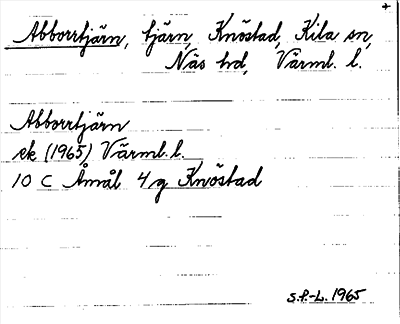 +
Abborrtjärn, tjärn, Knöstad, Kila sn,
Näs hd, Värml. l.
Abborrtjärn
ek (1965) Värml. l.
10 C Åmål 4 g Knöstad
S.P.-L. 1965